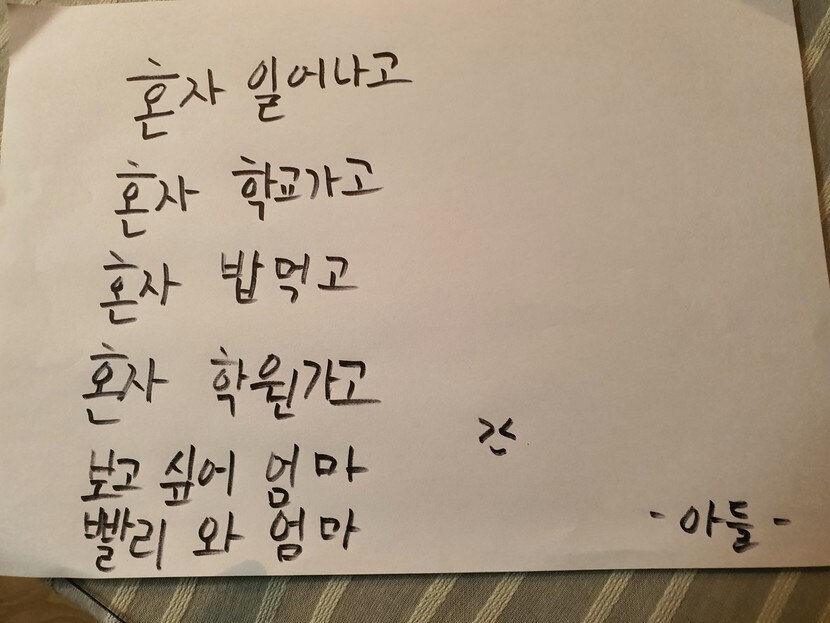 혼자 일어나고
혼자 학교가고
혼자 밥먹고
혼자 학원가고
보고 싶어 엄마
빨리 와 엄마
- 아들 -